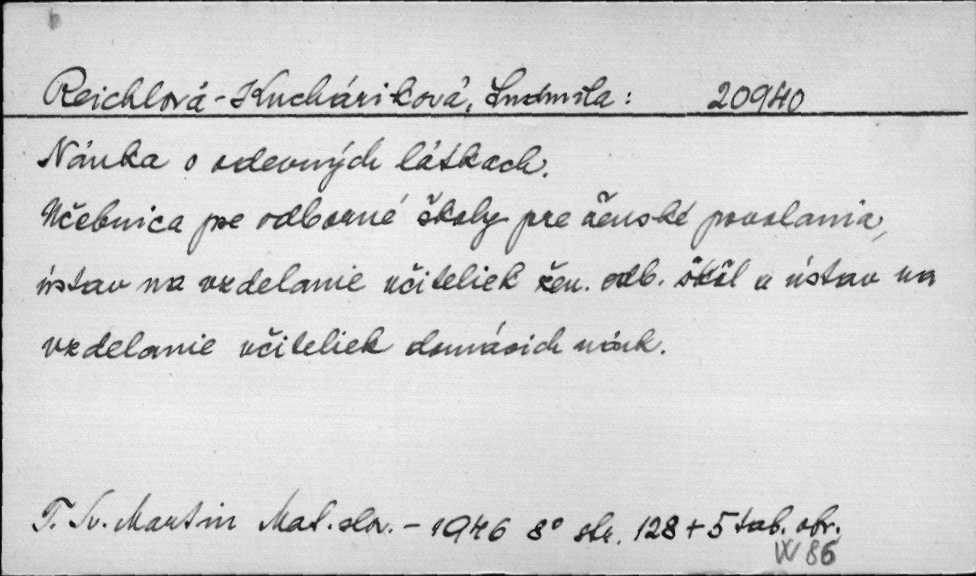 Reichlová-Kucháriková, Ludmila: 20940
Náuka o odevných látkach.
Učebnica pre odborné školy pre ženské povolania,
ústav na vzdelanie učiteliek žen. odb. škôl a ústav na
vzdelanie učiteliek domácich náuk.
T. Sv. Martin Mat. slov. - 1946 8° str. 128 + 5 tab. obr.
W 86